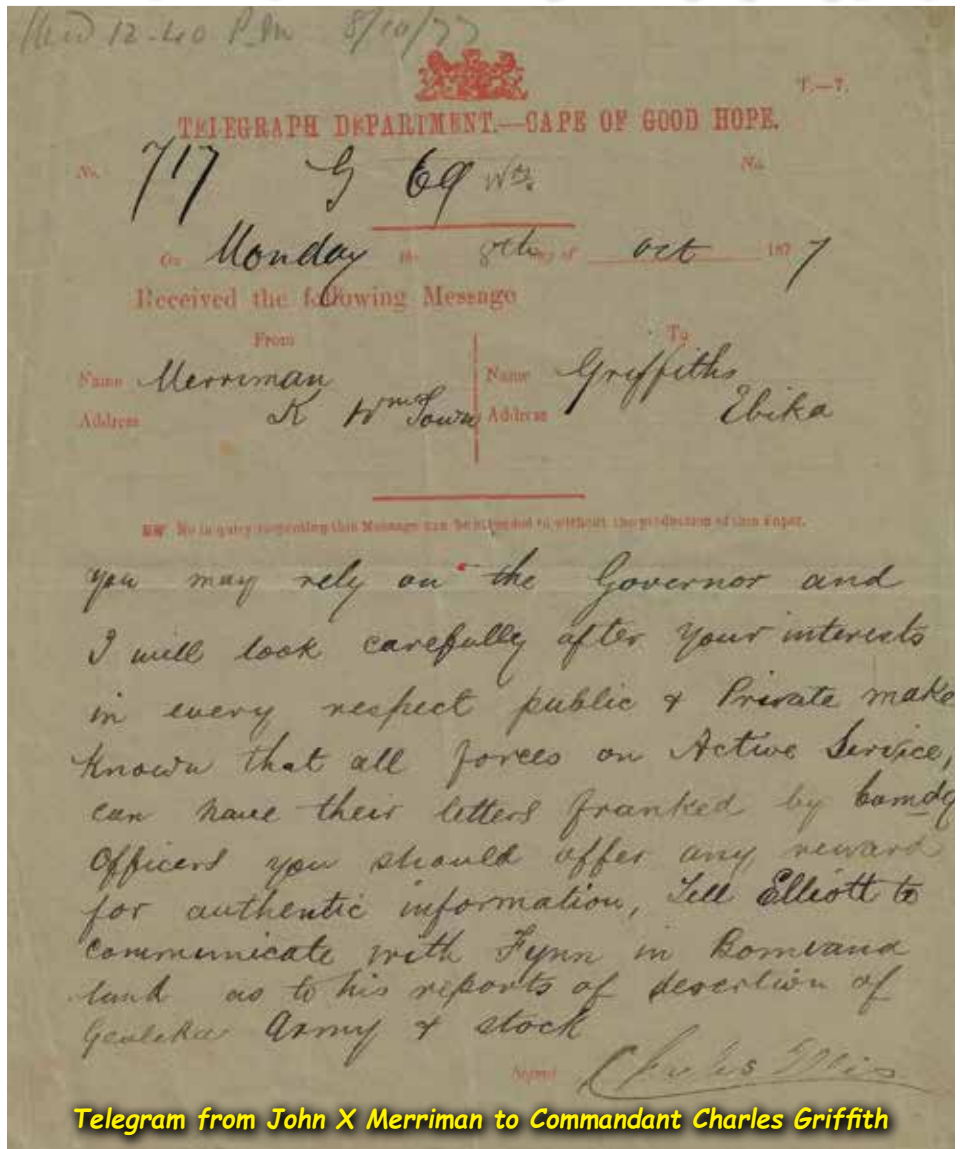 12-40 P.M 8/10/77
T.—7.
TELEGRAPH DEPARTMENT.—CAPE OF GOOD HOPE.
No. 717 G 69 Wds. No.
On Monday the 8th day of Oct 1877
Received the following Message
From To
Name Merriman Name Griffiths
Address K Wms Town Address Ebika
No inquiry respecting this Message can be attended to without the production of this Paper.
you may rely on the Governor and
I will look carefully after your interests
in every respect public & Private make
known that all forces on Active Service,
can have their letters franked by Comdg
Officers you should offer any reward
for authentic information, Tell Elliott to
communicate with Fynn in Bomvana
land as to his reports of desertion of
Gcaleka Army & stock
Signed Charles Ellis
Telegram from John X Merriman to Commandant Charles Griffith